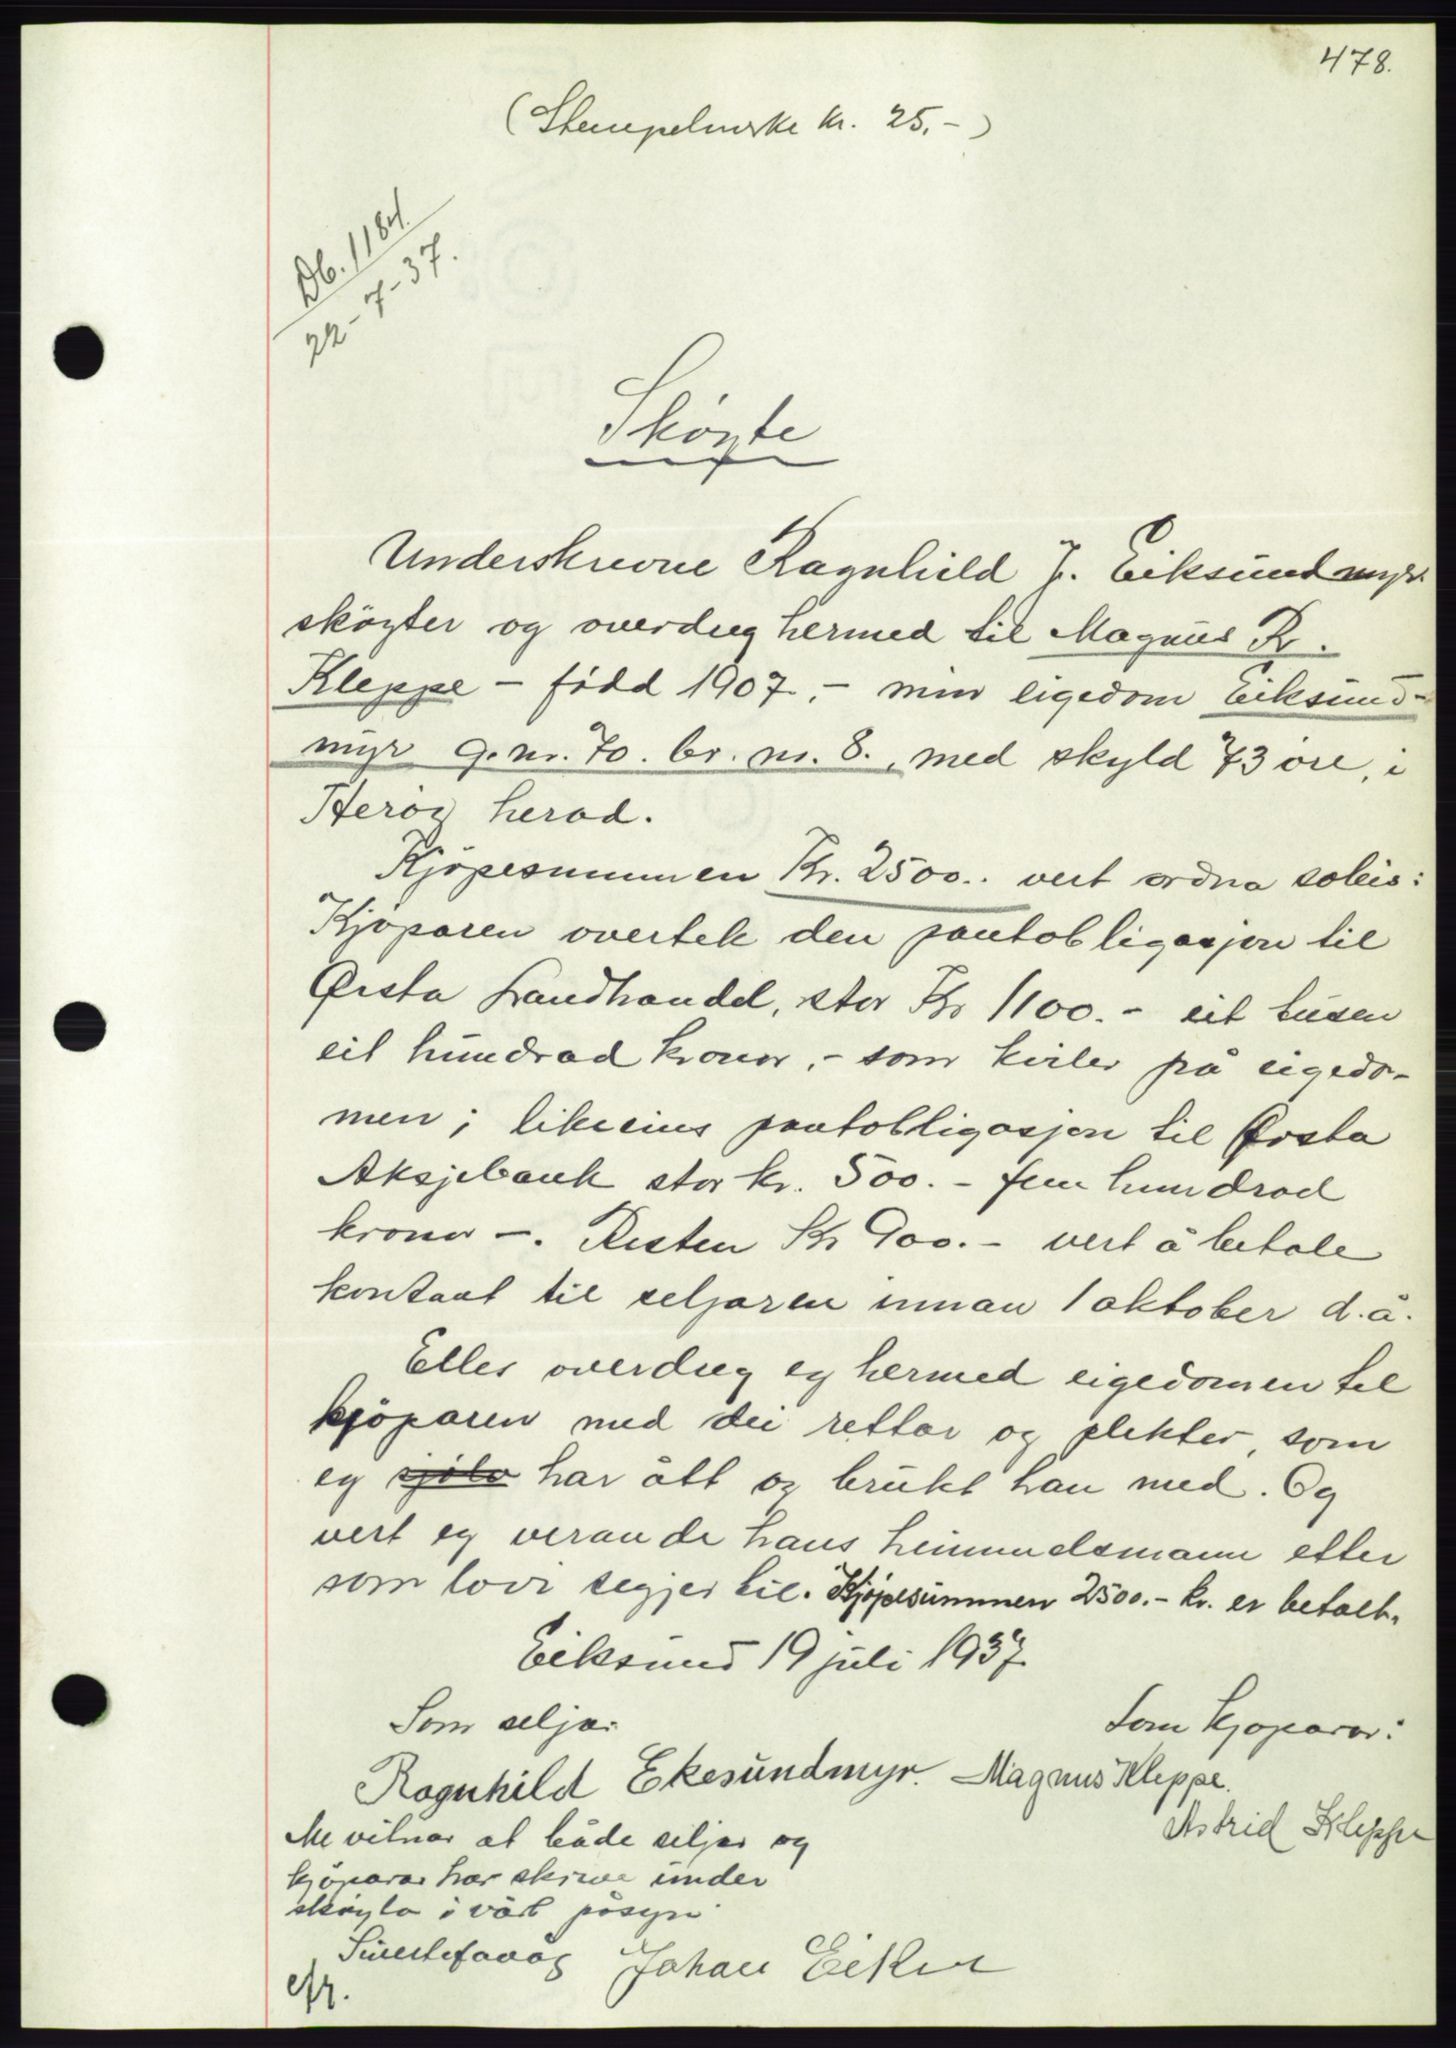 478.
(Stempelmerke kr. 25.-)
Db. 1184.
22-7-37.
Sköyte
Underskrevne Ragnhild J. Eiksundmyr
sköyter og overdreg hermed til Magnus R.
Kleppe - född 1907. - min eigedom Eiksund-
myr g.nr. 70. br. nr. 8., med skyld 73 öre, i
Heröy herad.
Kjöpesummen Kr. 2500.. vert ordna soleis:
Kjöparen overtek den pantobligasjon til
Ørsta Landhandel, stor Kr 1100.- eit tusen
eit hundrad kronor, - som kviler på eigedo-
men; likeeins pantobligasjon til Ørsta
Aksjebank stor kr. 500.- fem hundrad
kronor -. Resten Kr 900.- vert å betale
kontant til seljaren innan 1 oktober d.å.
Elles overdreg eg hermed eigedomen til
kjöparen med dei rettar og plikter, som
eg sjölv har ått og brukt han med. Og
vert eg verande hans heimmelsmann etter
som lovi segjer til. Kjöpesummen 2500.- kr. er betalt.
Eiksund 19 juli 1937
Som seljar: Som kjöparar:
Ragnhild Ekesundmyr. Magnus Kleppe.
Astrid Kleppe
Me vitnar at både seljar og
kjöparar har skrive under
sköyta i vårt påsyn
Johan Eiken
efr.